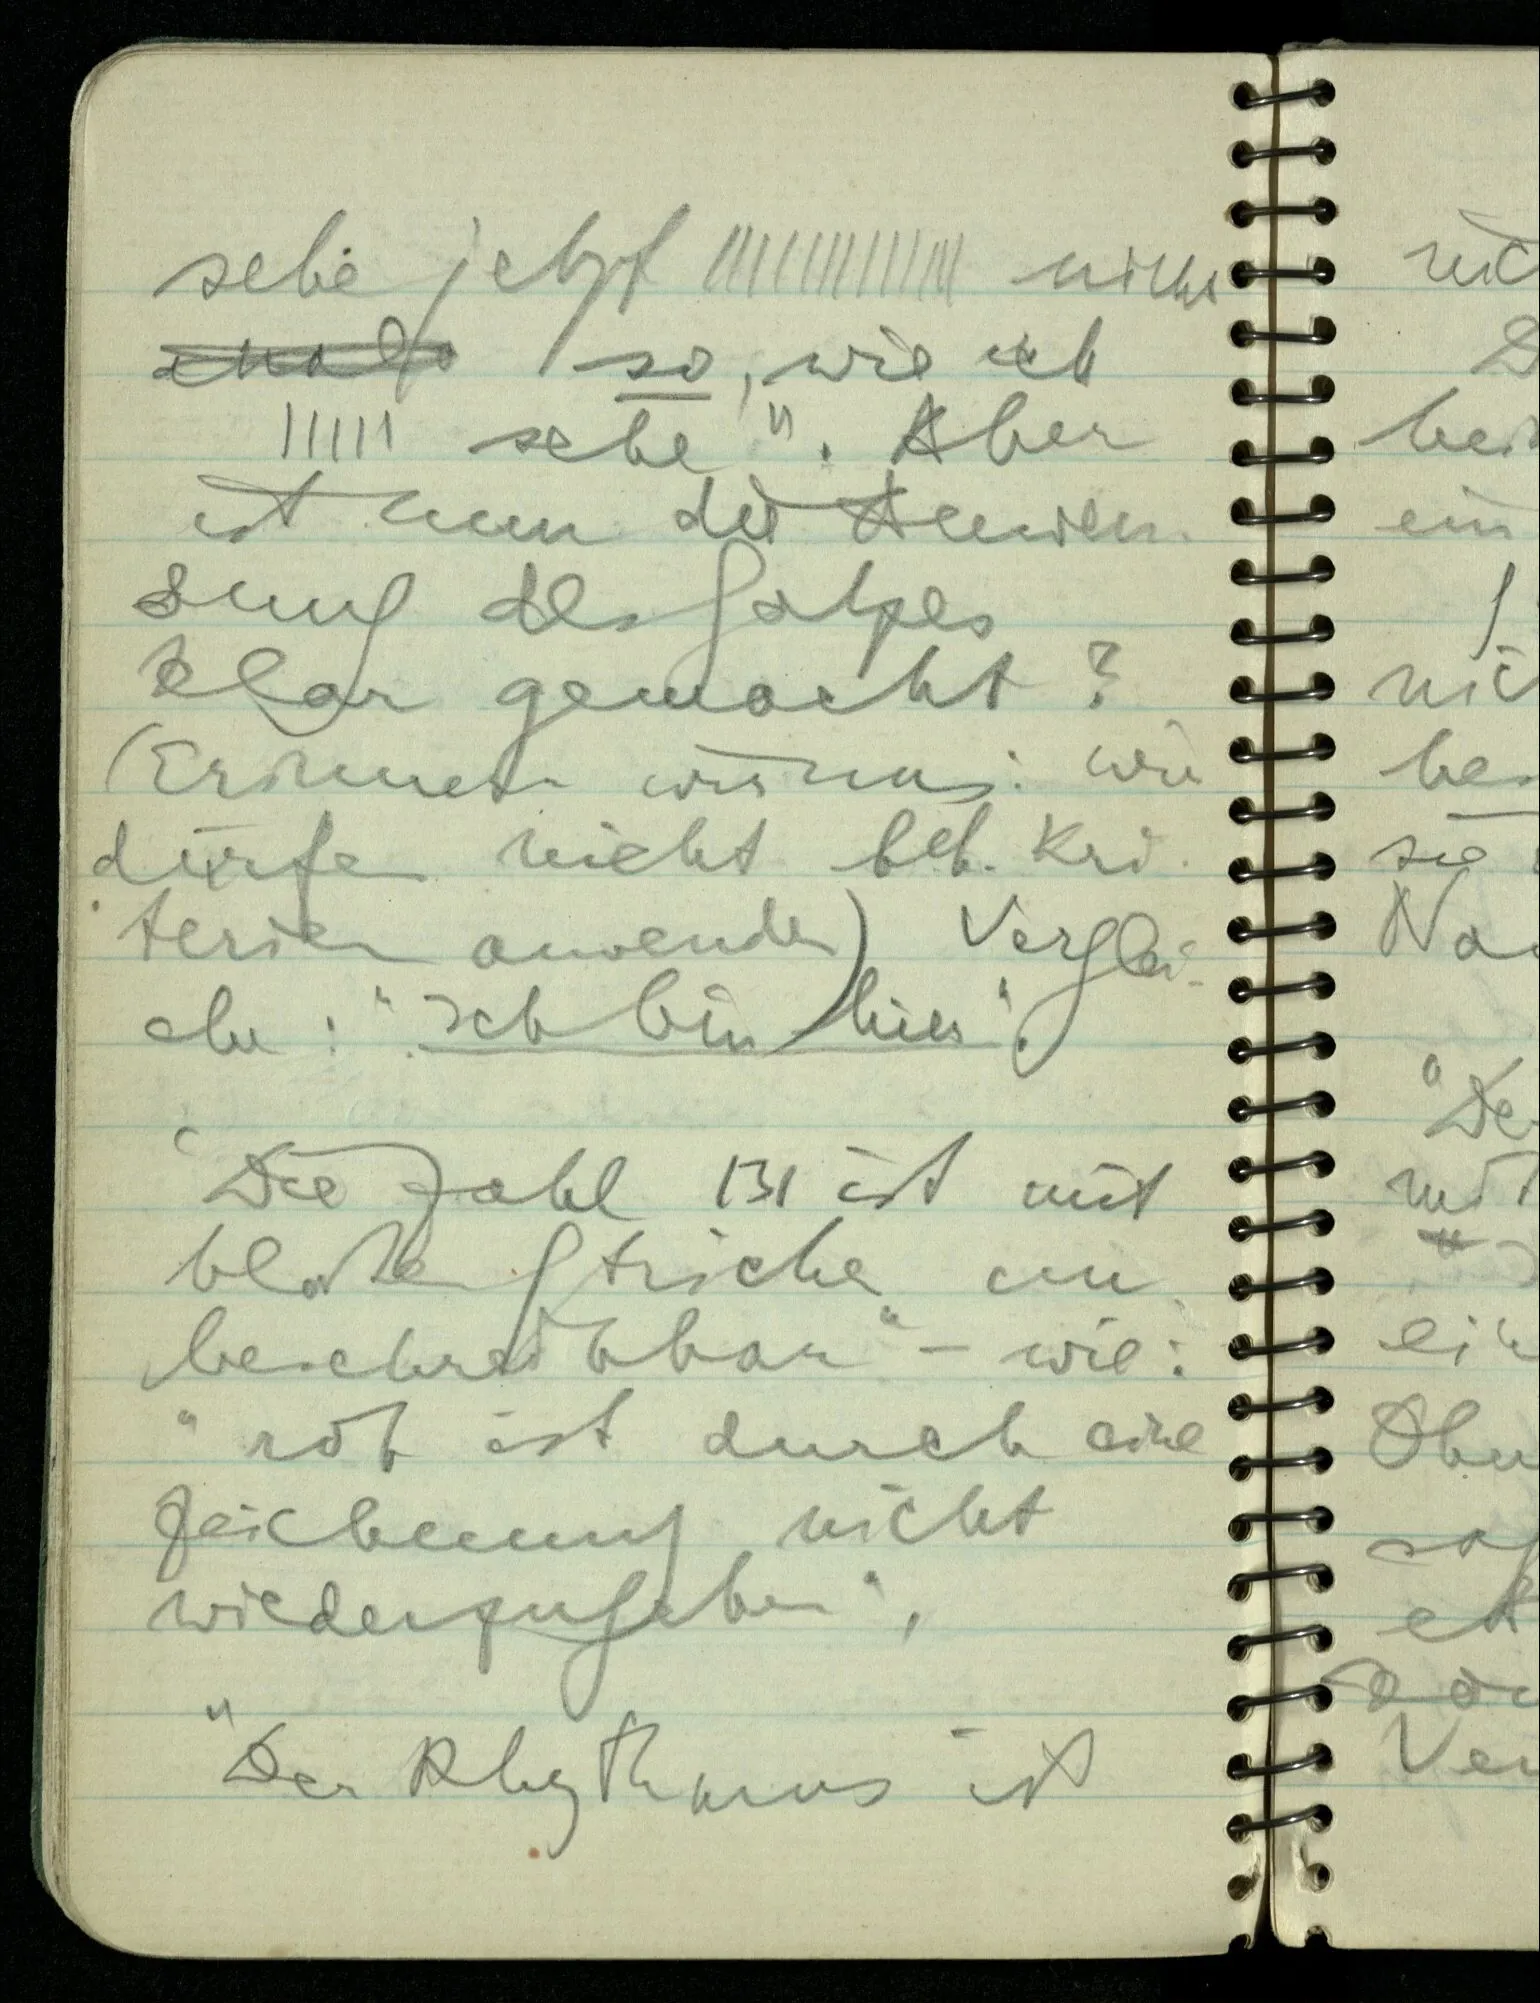 sehe jetzt |||||||||||||||| nicht
so, wie ich
||||| sehe". Aber
ist nun die Anwen-
dung des Satzes
klar gemacht?
(Erinnern wir uns: wir
dürfen nicht beh. Kri-
terien anwenden) Verglei-
che: "Ich bin hier".
"Die Zahl 131 ist mit
bloßen Strichen un-
beschreibbar" – wie:
"rot ist durch eine
Zeichnung nicht
wiederzugeben",
"Der Rhythmus ist
nic
D
bei
ein
nic
be
sie
Na
"De
mit
ein
Ver